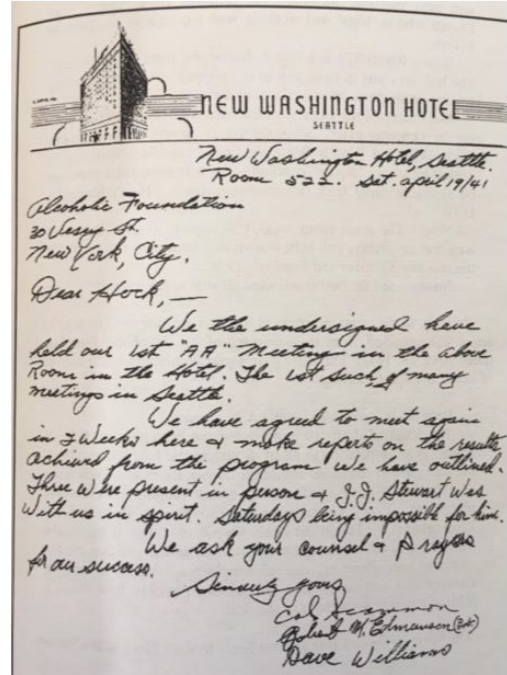 NEW WASHINGTON HOTEL
SEATTLE
New Washington Hotel, Seattle.
Room 522. Sat. april 19/41
Alcoholic Foundation
30 Vesey St.
New York, City.
Dear Hock, —
We the undersigned have
held our 1st "AA" Meeting in the above
Room in the Hotel. The 1st such, of many
meetings in Seattle.
We have agreed to meet again
in 2 Weeks here & make reports on the results
achived from the program We have outlined.
Three Were present in person & J.J. Stewart Was
With us in spirit. Saturdays being impossible for him.
We ask your counsel & Prayers
for our success.
Sincerely yours,
Cal Scammon
Robert M. Edmunson
Dave Williams